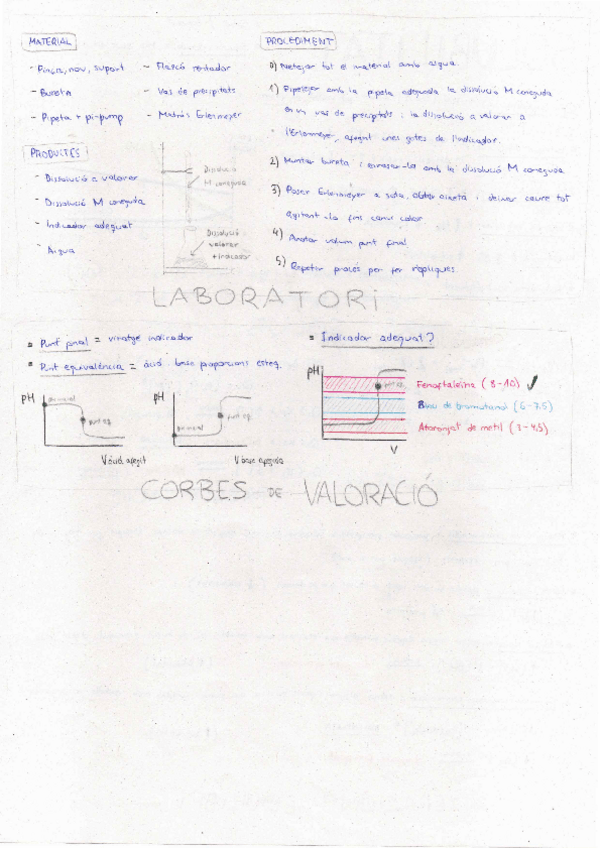 MATERIAL
- Pinça, nou, suport
- Bureta
- Pipeta + pi-pump
- Flascó rentador
- Vas de precipitats
- Matràs Erlenmeyer
PRODUCTES
- Dissolució a valorar
- Dissolució M coneguda
- Indicador adequat
- Aigua
Dissolució
M coneguda
Dissolució
valorar
+ indicador
PROCEDIMENT
0) Netejar tot el material amb aigua.
1) Pipetejar amb la pipeta adequada la dissolució M coneguda
en un vas de precipitats i la dissolució a valorar a
l'Erlenmeyer, afegint unes gotes de l'indicador.
2) Muntar bureta i enrasar-la amb la dissolució M coneguda.
3) Posar Erlenmeyer a sota, obrir aixeta i deixar caure tot
agitant-lo fins canvi color
4) Anotar volum punt final.
5) Repetir procés per fer rèpliques.
LABORATORI
Punt final = viratge indicador
Punt equivalència = àcid i base proporcions esteq.
pH
punt inicial
punt eq.
V àcid afegit
pH
punt inicial
punt eq.
V base afegida
Indicador adequat?
pH
punt eq.
V
Fenoftaleïna (8-10) ✓
Blau de bromotimol (6-7.5)
Ataronjat de metil (3-4.5)
CORBES DE VALORACIÓ